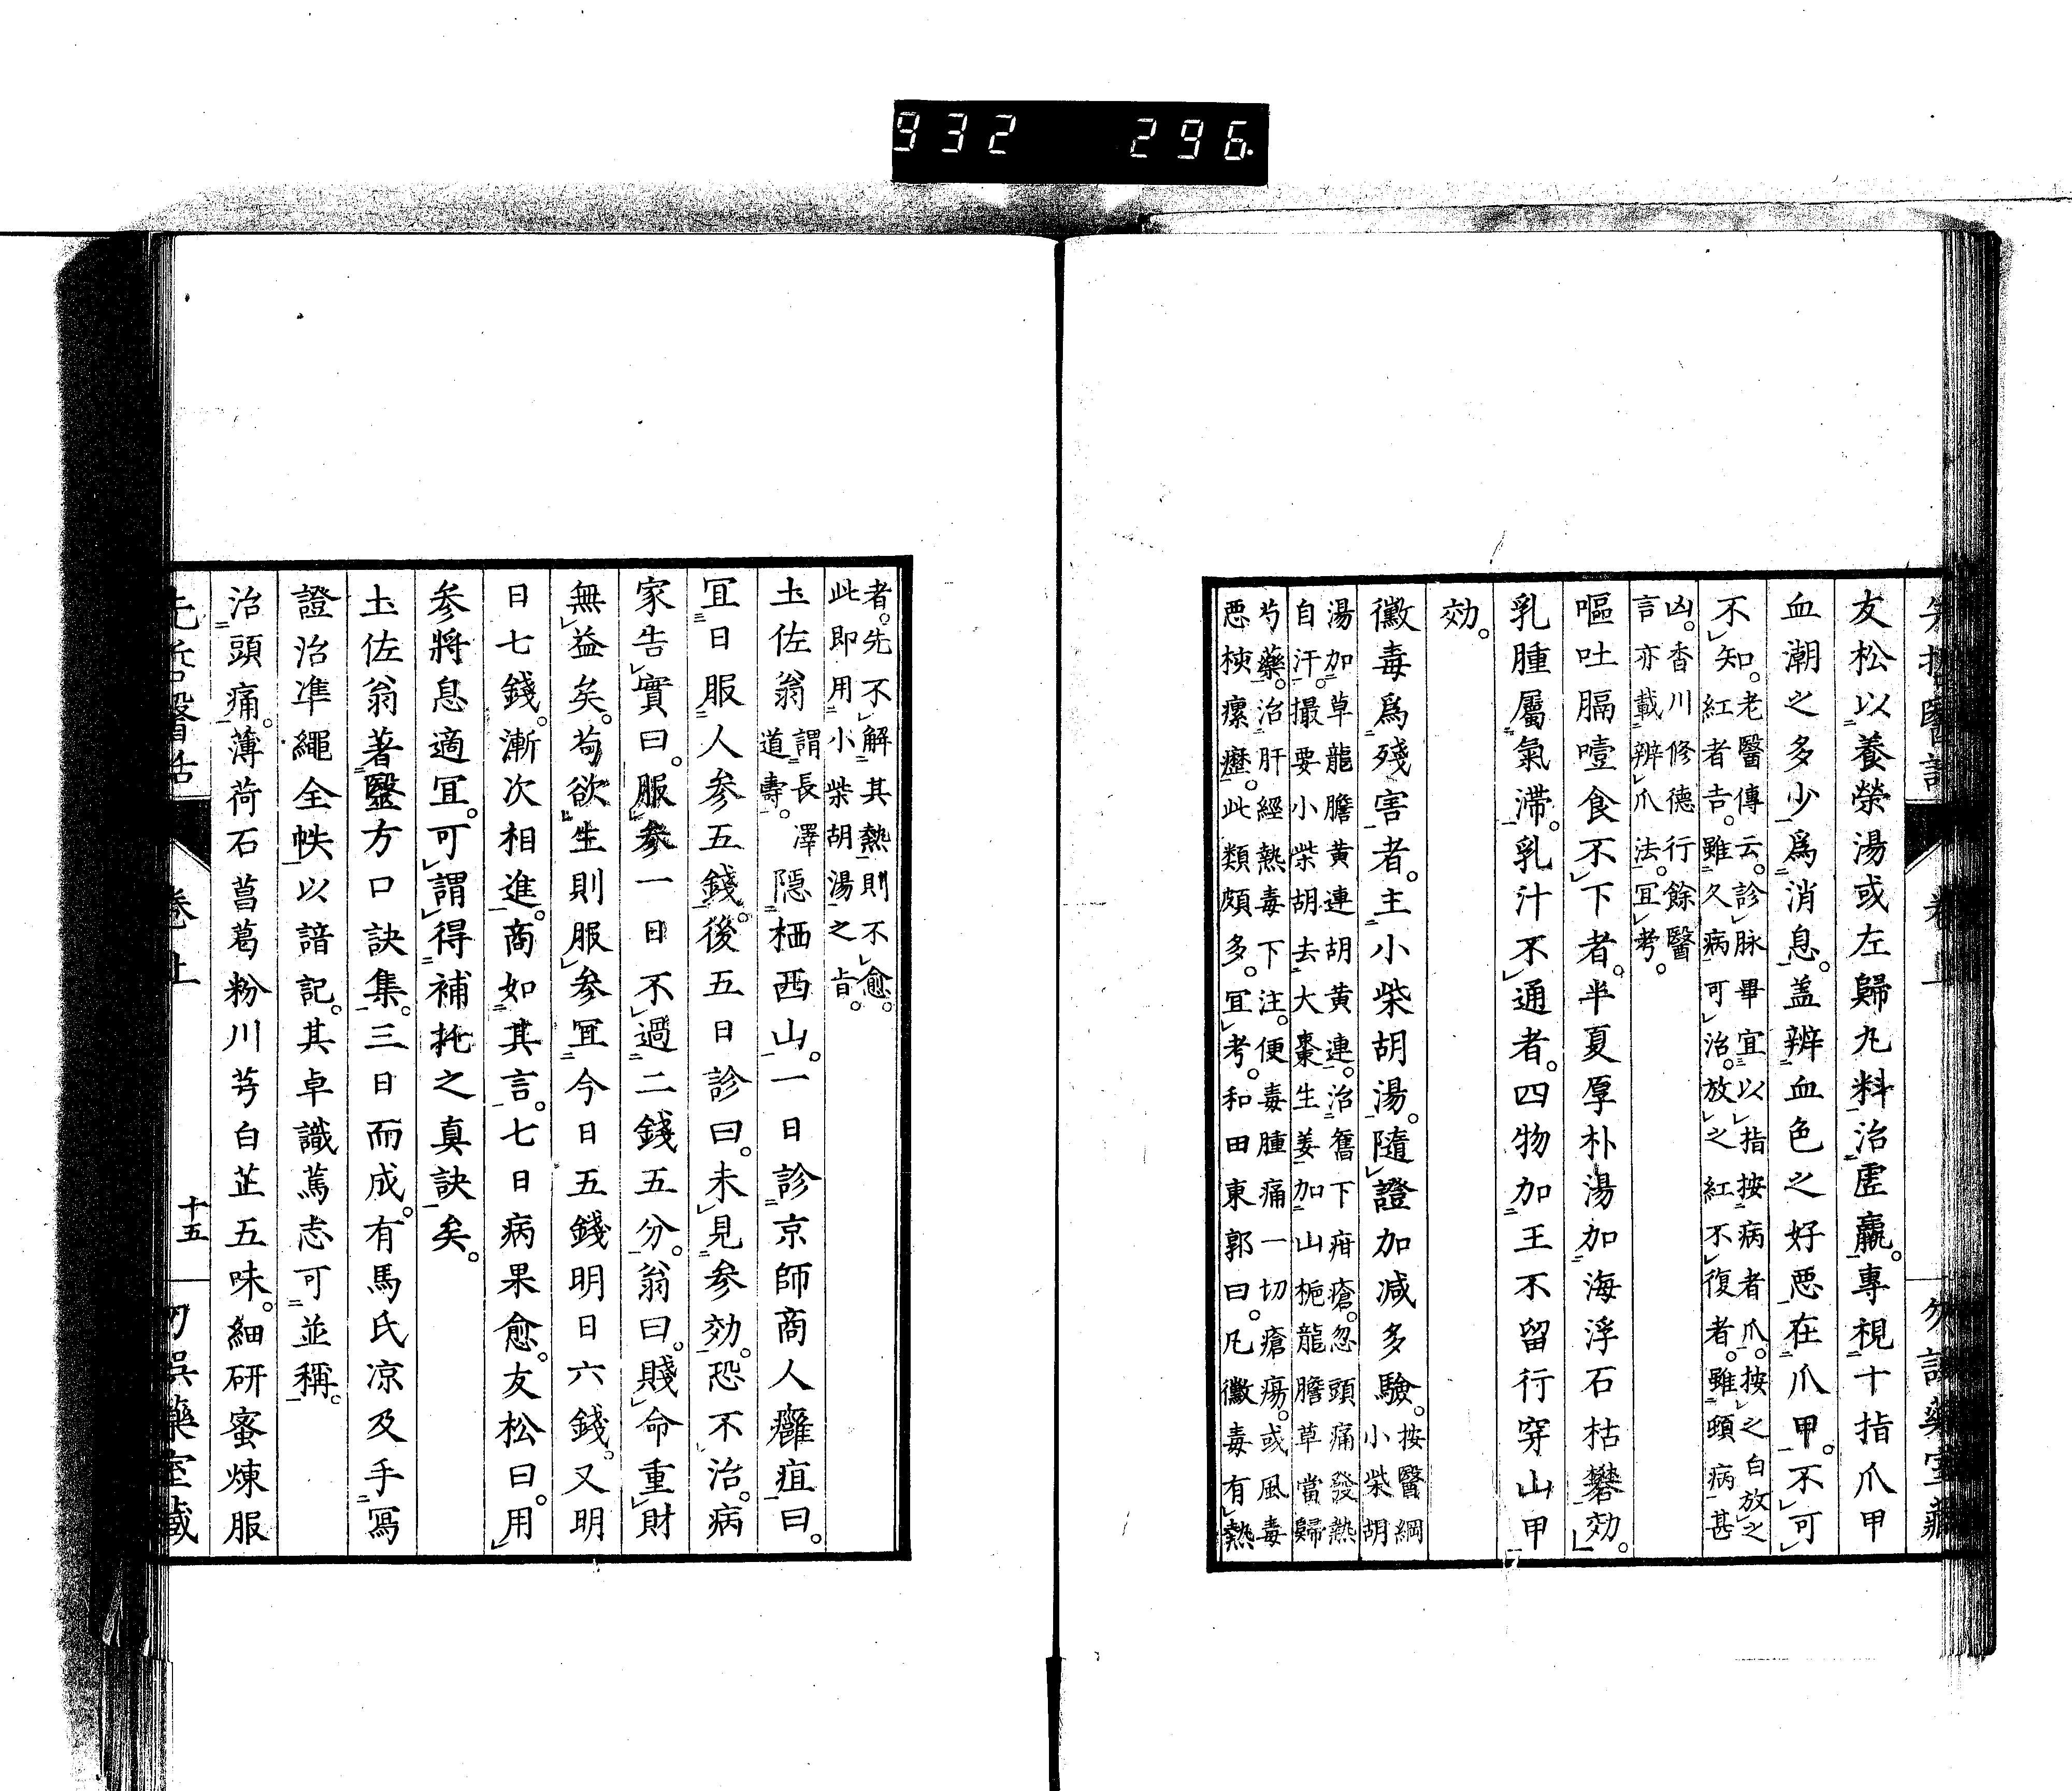 932 296.
友松以養榮湯或左歸丸料治虛羸。專視十指爪甲
血潮之多少爲消息。盖辨血色之好惡在爪甲。不可
不知。老醫傳云。診脉畢宜以指按病者爪。按之白放之
紅者吉。雖久病可治。放之紅不復者。雖頭病甚
凶。香川修德行餘醫
言亦載辨爪法。宜考。
嘔吐膈噎食不下者。半夏厚朴湯加海浮石枯礬効。
乳腫屬氣滯。乳汁不通者。四物加王不留行穿山甲
効。
黴毒爲殘害者。主小柴胡湯。隨證加减多驗。按醫綱
小柴胡
湯加草龍膽黄連胡黄連。治舊下疳瘡。忽頭痛發熱
自汗。撮要小柴胡去大棗生姜加山梔龍膽草當歸
芍藥。治肝經熱毒下注。便毒腫痛一切瘡瘍。或風毒
惡核瘰癧。此類頗多。宜考。和田東郭曰。凡黴毒有熱
者。先不解其熱則不愈。
此即用小柴胡湯之旨。
土佐翁謂長澤
道壽。隱栖西山。一日診京師商人癰疽曰。
宜日服人参五錢。後五日診曰。未見参効。恐不治。病
家告實曰。服参一日不過二錢五分。翁曰。賤命重財
無益矣。苟欲生則服参宜今日五錢明日六錢。又明
日七錢。漸次相進。商如其言。七日病果愈。友松曰。用
参將息適宜。可謂得補托之真訣矣。
土佐翁著醫方口訣集。三日而成。有馬氏凉及手寫
證治凖繩全帙以諳記。其卓識篤志可並稱。
治頭痛。薄荷石菖葛粉川芎白芷五味。細研蜜煉服
先哲醫話 卷上 十五